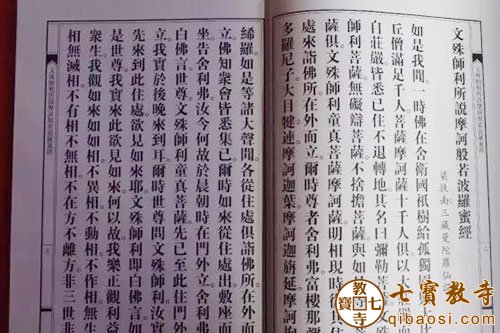 文殊師利所說摩訶般若波羅蜜經
梁扶南三藏曼陀羅仙
如是我聞。一時佛在舍衛國祇樹給孤獨
丘僧滿足千人菩薩摩訶薩十千人俱以
自莊嚴皆悉已住不退轉地其名曰彌勒菩
師利菩薩無礙辯菩薩不捨擔菩薩與如
薩俱文殊師利童真菩薩摩訶薩明相現時從其
處來詣佛所在外而立爾時尊者舍利弗富樓那
多羅尼子大目犍連摩訶迦葉摩訶迦旃延摩訶
絺羅如是等諸大聲聞各從住處俱詣佛所在外而
立佛知眾會皆悉集已爾時如來從住處出敷座而
坐告舍利弗汝今何故於晨朝時在門外立舍利弗
白佛言世尊文殊師利童真菩薩先已至此住門外
立我實於後晚來到耳爾時世尊問文殊師利汝實
先來到此住處欲見如來耶文殊師利即白佛言如
是世尊我實來此欲見如來何以故我樂正觀利益
眾生我觀如來如如相不異相不動相不作相無生
相無滅相不有相不無相不在方不離方非三世非
七寶教寺
qibaosi.com
七寶教寺